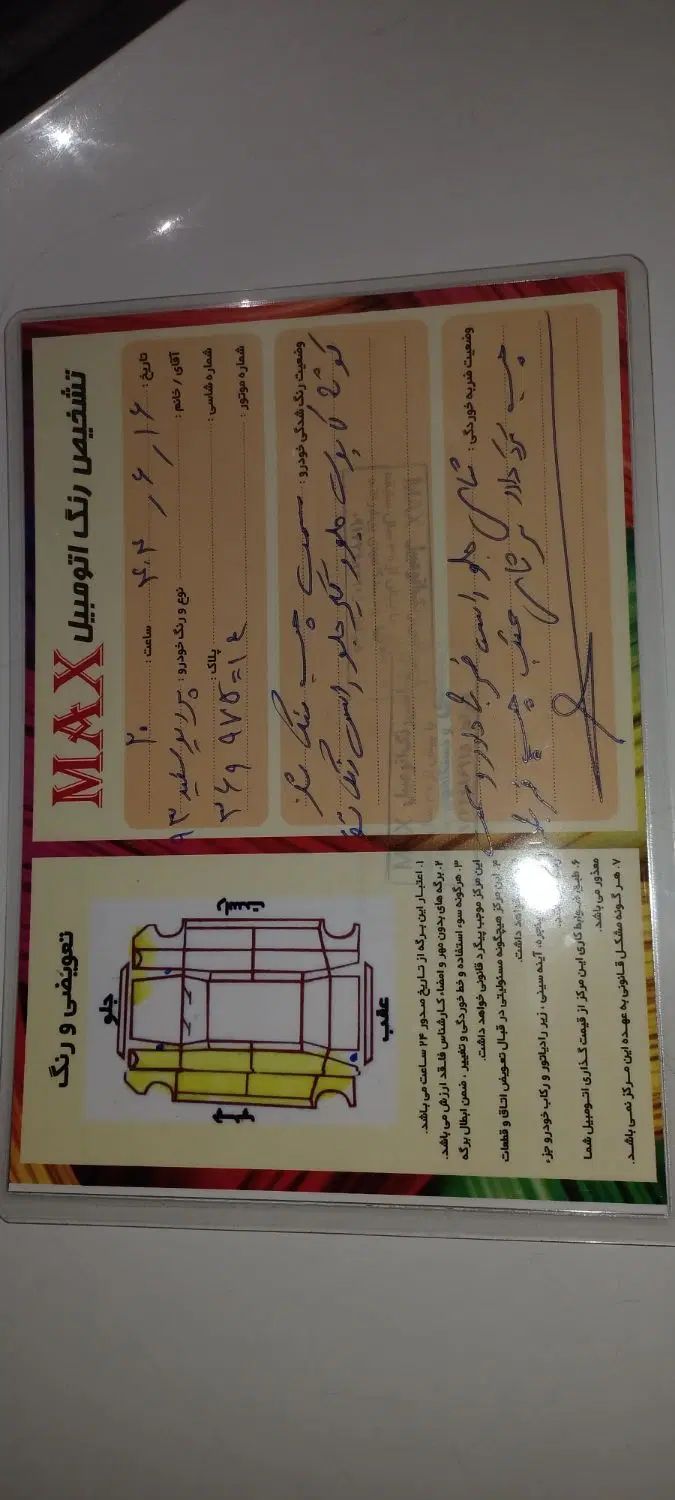 MAX تشخیص رنگ اتومبیل
تاریخ : ۴۰۲ / ۶ / ۱۶ ساعت : ۲۰
آقای / خانم : نوع و رنگ خودرو : پراید سفید ۹۳
شماره شاسی : پلاک :
شماره موتور :
وضعیت رنگ شدگی خودرو : سمت چپ رنگ شد
گوشه کاپوت جلو گلگیر جلو راست رنگ شد
وضعیت ضربه خوردگی : شاسی جلو راست ضربه دارد و
چپ گرد دارد سر شاسی عقب چپ ضربه
تعویضی و رنگ
جلو
راست
چپ
عقب
۱. اعتبار این برگه از تاریخ صدور ۲۴ ساعت می باشد.
۲. برگه های بدون مهر و امضاء کارشناس فاقد ارزش می باشد.
۳. هرگونه سوء استفاده و خط خوردگی و تغییر ، ضمن ابطال برگه
این مرکز موجب پیگرد قانونی خواهد داشت.
۴. این مرکز هیچگونه مسئولیتی در قبال تعویض اتاق و قطعات
نخواهد داشت.
پنجره، آینه سینی ، زیر رادیاتور و رکاب خودرو جزء
۶. طبق ضوابط کاری این مرکز از قیمت گذاری اتومبیل شما
معذور می باشد.
۷. هر گونه مشکل قانونی به عهده این مرکز نمی باشد.